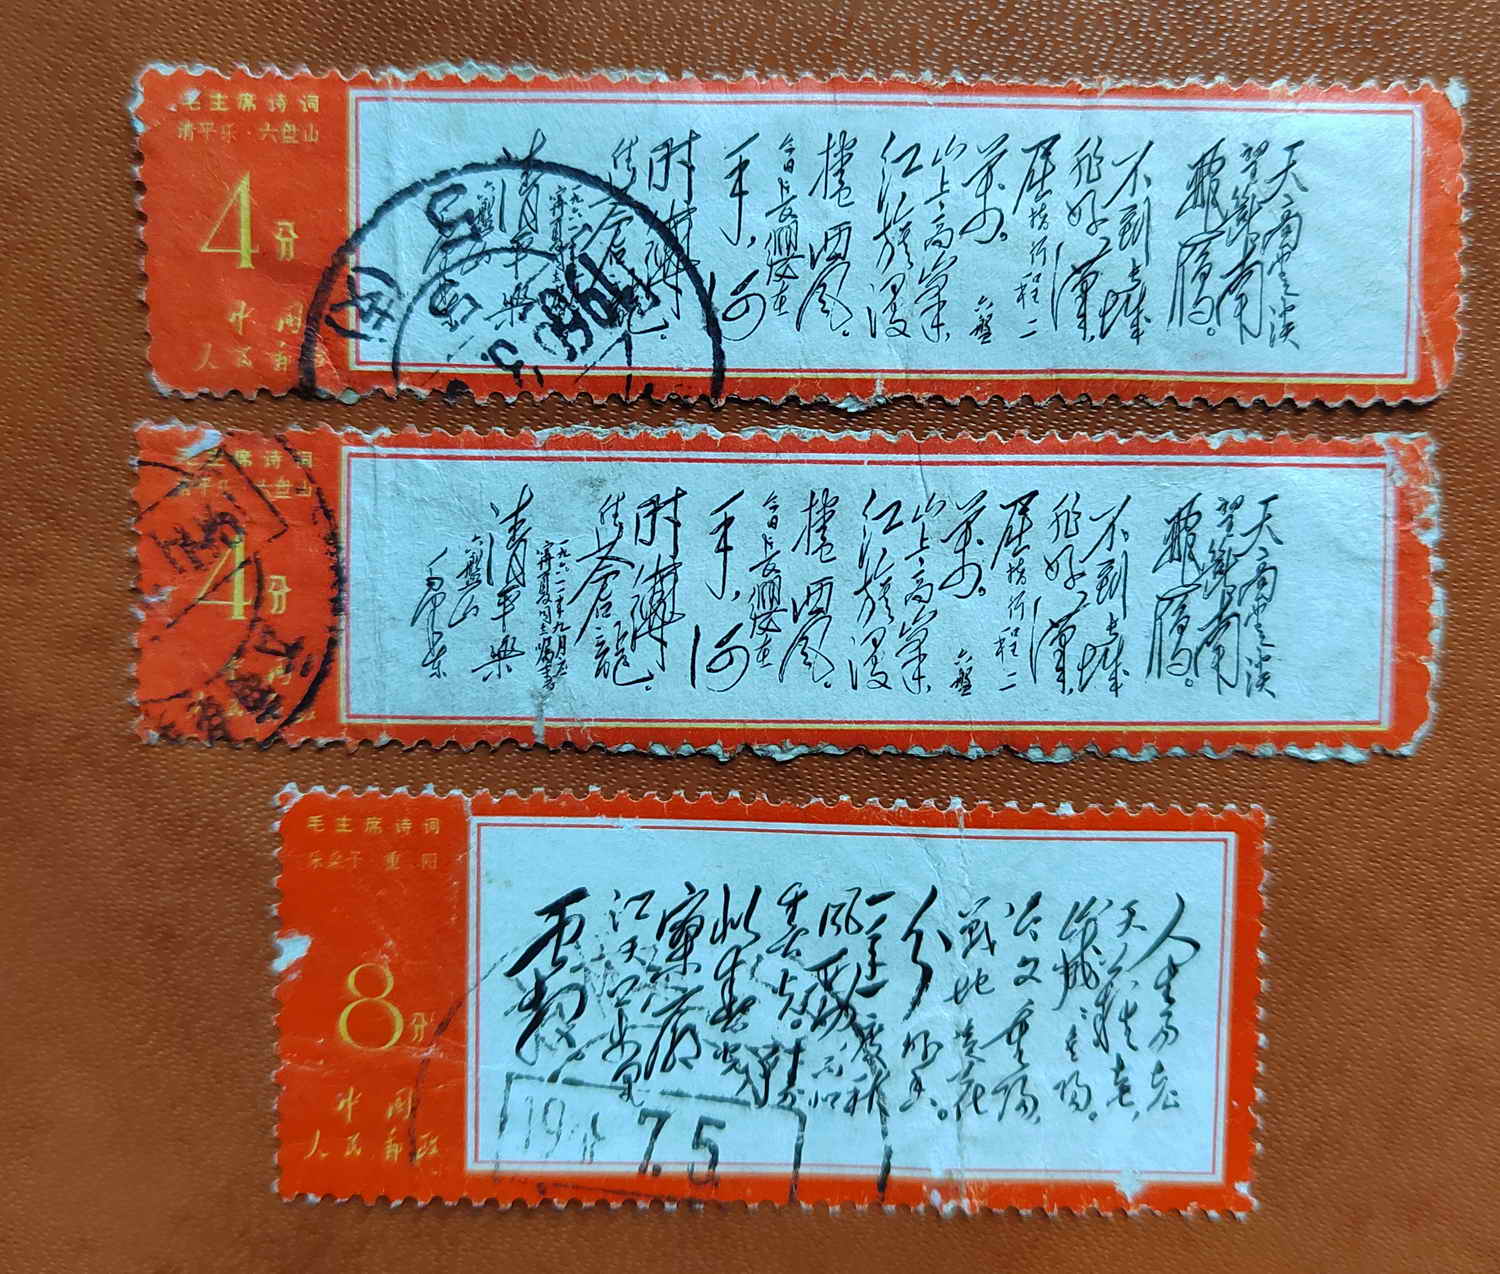 毛主席诗词
清平乐·六盘山
4分
中国
人民邮政
天高云淡
望断南
飛雁。
不到长城
非好漢，
屈指行程二
萬。六盤
山上高峯，
红旗漫
捲西风。
今日長纓在
手，何
時縛
住苍龍。
清平樂
六盤山
毛主席诗词
清平乐·六盘山
4分
天高云淡
望断南
飛雁。
不到长城
非好漢，
屈指行程二
萬。六盤
山上高峯，
红旗漫
捲西风。
今日長纓在
手，何
時縛
住苍龍。
一九六一年九月
寧夏同志嘱書
清平樂
六盤山
毛泽东
毛主席诗词
采桑子·重阳
8分
中国
人民邮政
人生易老
天难老，
岁岁重陽。
今又重陽，
戰地黄花
分外香。
一年一度秋
风劲，不似
春光。
寥廓
江天万里
霜
7.5